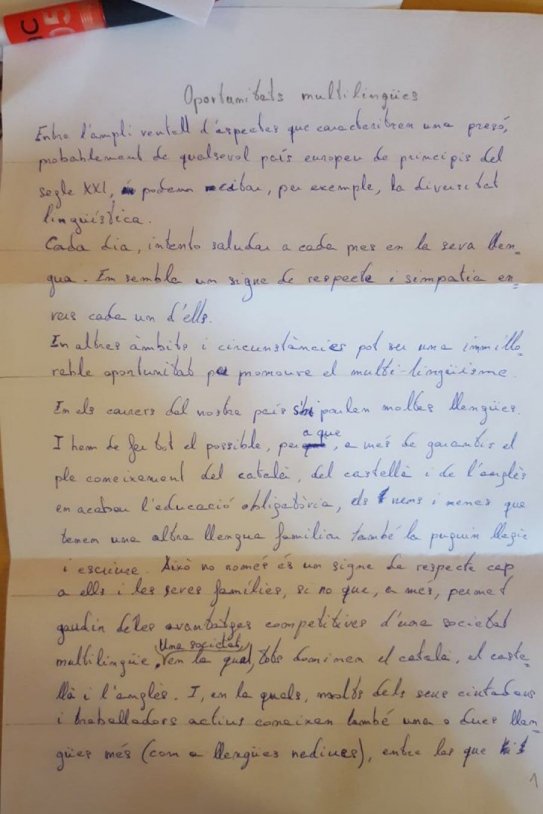 Oportunitats multilingües
Entre l'ampli ventall d'aspectes que caracteritzen una presó,
probablement de qualsevol país europeu de principis del
segle XXI, podem citar, per exemple, la diversitat
lingüística.
Cada dia, intento saludar a cada pres en la seva llen=
gua. Em sembla un signe de respecte i simpatia en=
vers cada un d'ells.
En altres àmbits i circumstàncies pot ser una immillo=
rable oportunitat per promoure el multi-lingüisme.
En els carrers del nostre país s'hi parlen moltes llengües.
I hem de fer tot el possible, per a que, a més de garantir el
ple coneixement del català, del castellà i de l'anglès
en acabar l'educació obligatòria, els nens i nenes que
tenen una altra llengua familiar també la puguin llegir
i escriure. Això no només és un signe de respecte cap
a ells i les seves famílies, si no que, a més, permet
gaudir de les avantatges competitives d'una societat
multilingüe. Una societat, en la qual, tots dominen el català, el caste=
llà i l'anglès. I, en la quals, molts dels seus ciutadans
i treballadors actius coneixen també una o dues llen=
gües més (com a llengües nadiues), entre les que
1
05